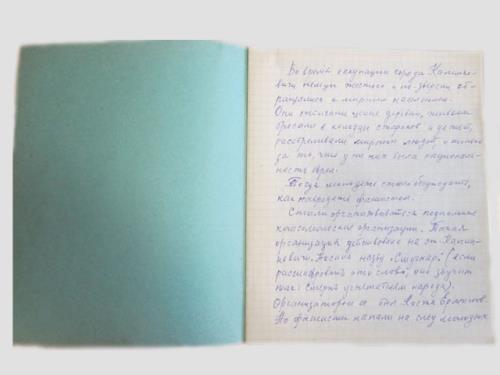 Во время оккупации города Калинко-
вичи немцы жестоко и по-зверски об-
ращались с мирным населением.
Они сжигали целые деревни, живыми
бросали в колодцы стариков и детей,
расстреливали мирных людей только
за то, что у них была национал-
ность евреи.
Тогда молодёжь стала
как навредить фашистам.
Стали организовываться подпольные
комсомольские организации. Такая
организация действовала на ст. Калин-
ковичи. Носила назву „Смугнар" (если
расшифровать это слово, оно звучит
так: Смерть угнетателям народа).
Организатором её был Костя Ермилов.
Но фашисты напали на след молодых